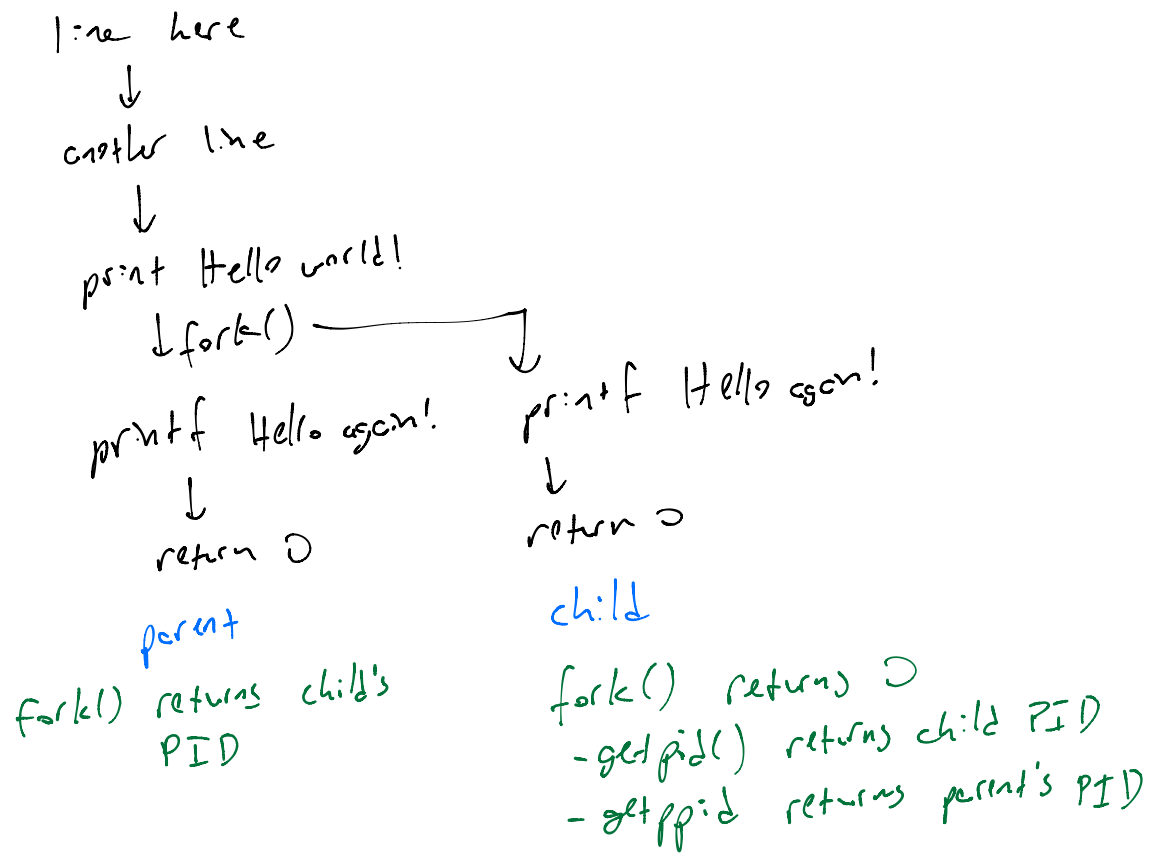 line here
another line
print Hello world!
fork()
printf Hello again!
return 0
parent
fork() returns child's
PID
printf Hello again!
return 0
child
fork() returns 0
- getpid() returns child PID
- getppid returns parent's PID